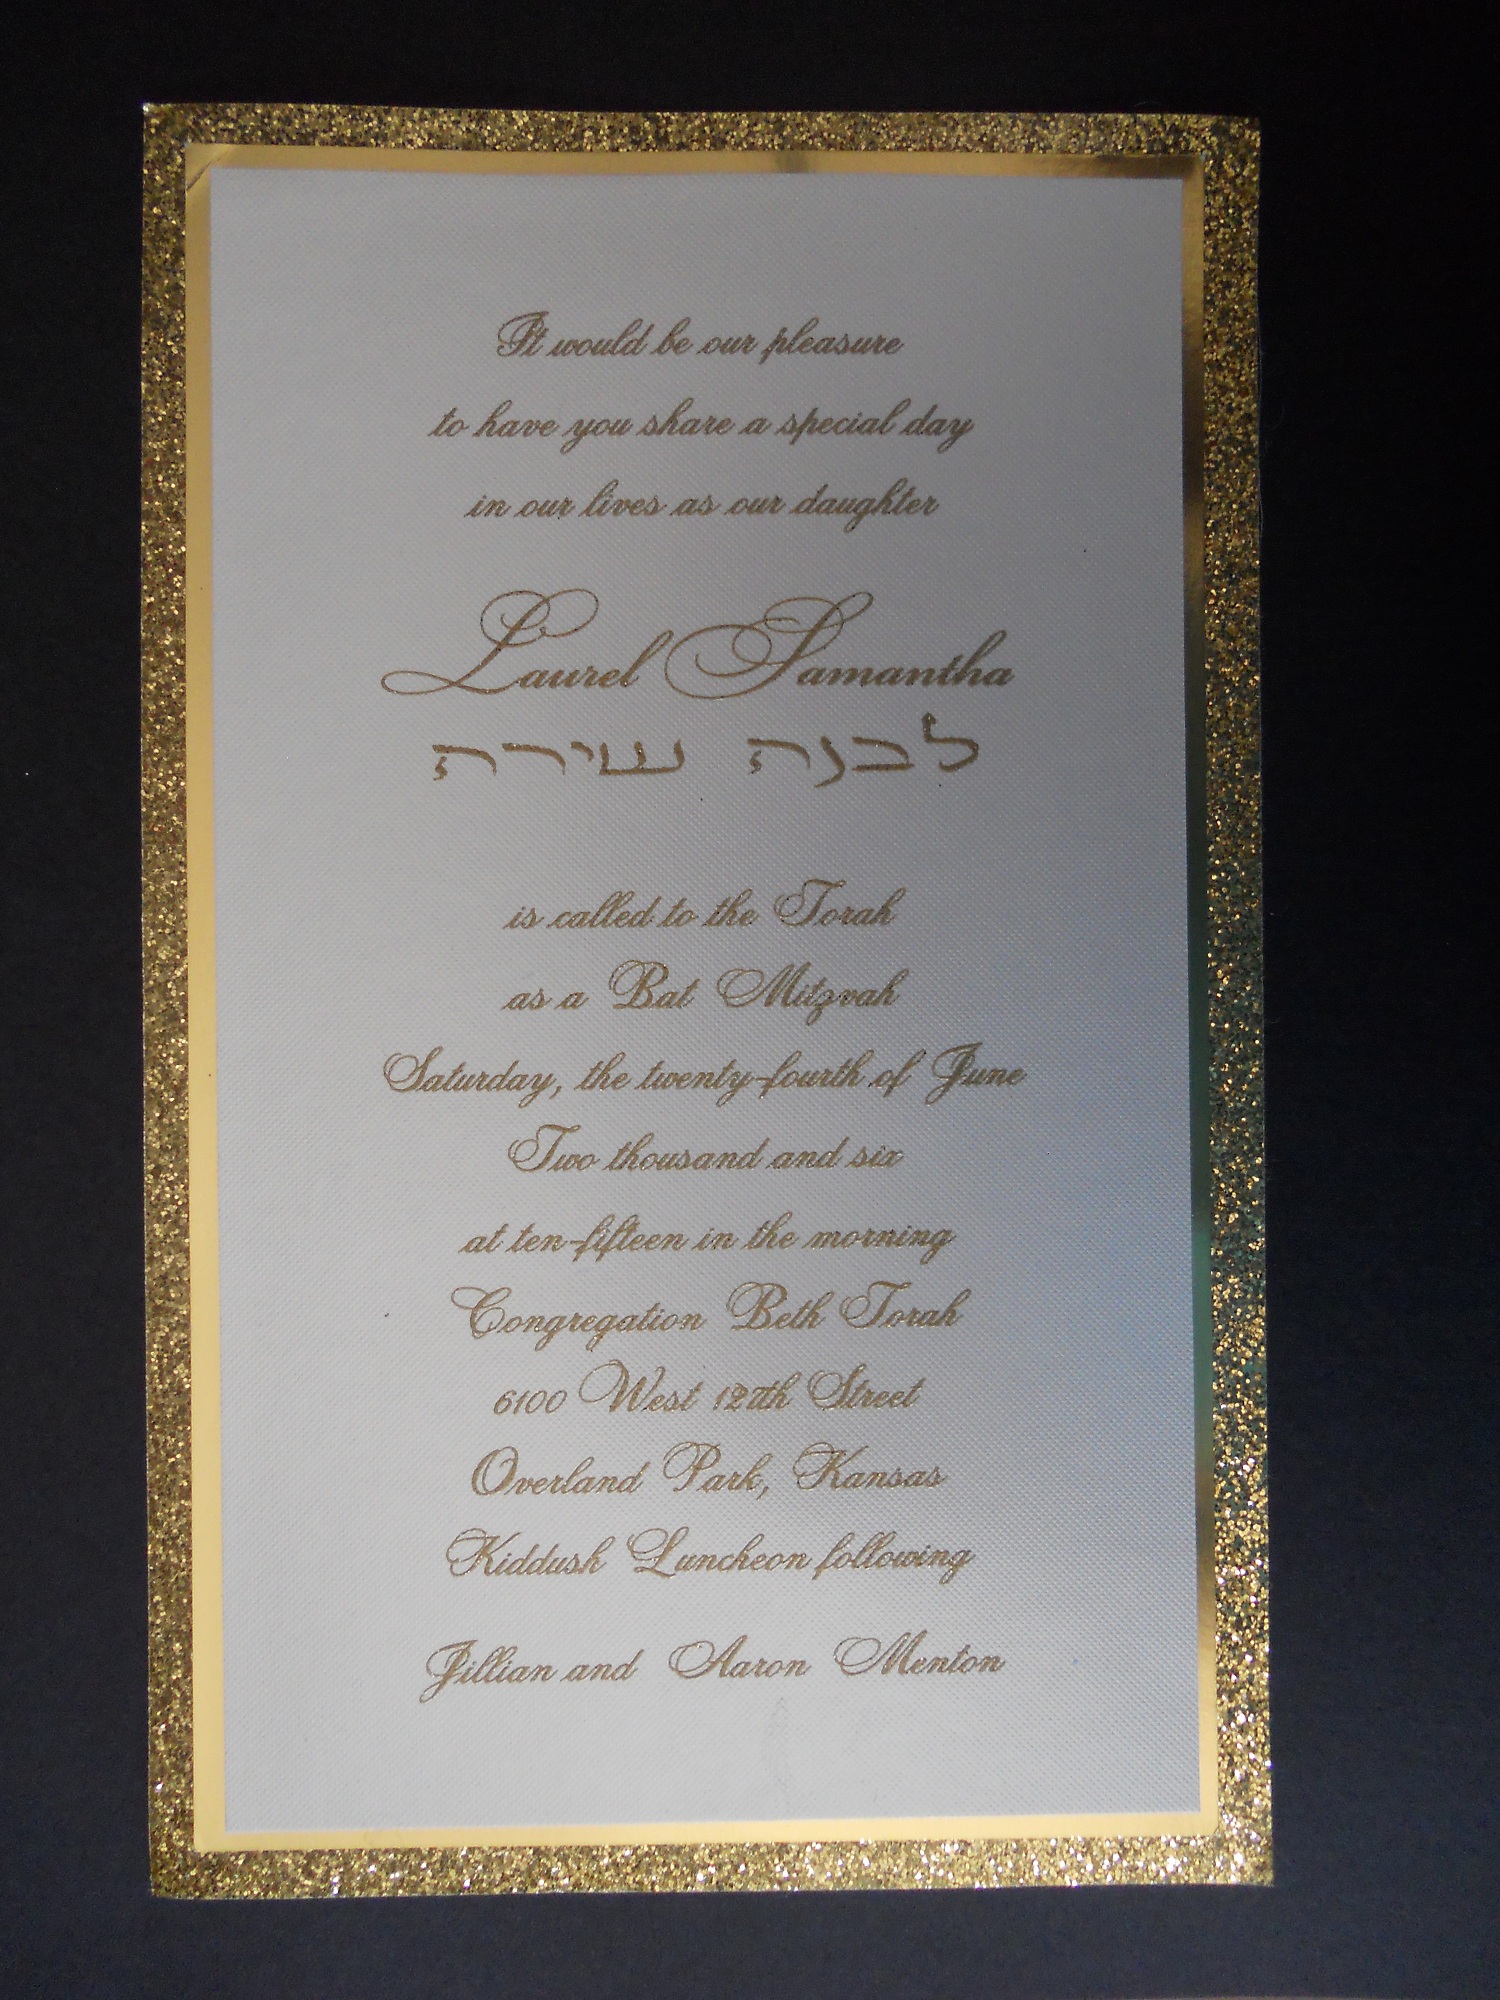 It would be our pleasure
to have you share a special day
in our lives as our daughter
Laurel Samantha
לבנה שירה
is called to the Torah
as a Bat Mitzvah
Saturday, the twenty-fourth of June
Two thousand and six
at ten-fifteen in the morning
Congregation Beth Torah
6100 West 127th Street
Overland Park, Kansas
Kiddush Luncheon following
Jillian and Aaron Menton